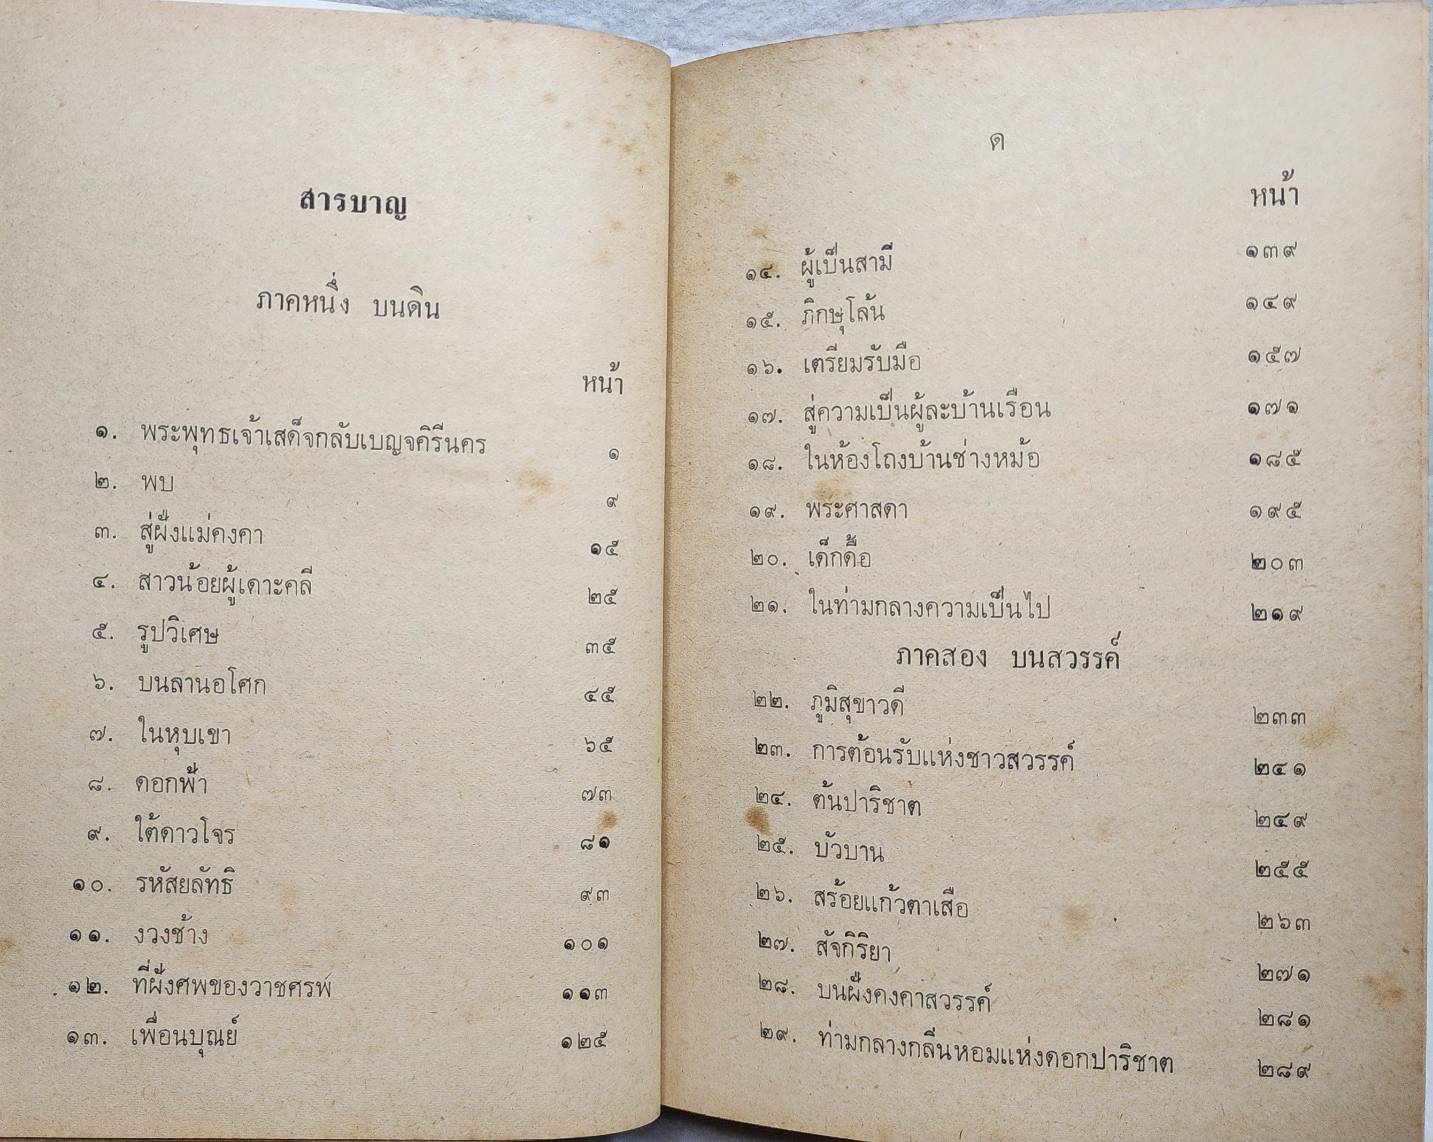 สารบาญ
ภาคหนึ่ง บนดิน
หน้า
๑. พระพุทธเจ้าเสด็จกลับเบญจคิรีนคร ๑
๒. พบ ๙
๓. สู่ฝั่งแม่คงคา ๑๕
๔. สาวน้อยผู้เดาะคลี ๒๕
๕. รูปวิเศษ ๓๕
๖. บนลานอโศก ๔๕
๗. ในหุบเขา ๖๕
๘. ดอกฟ้า ๗๓
๙. ใต้ดาวโจร ๘๑
๑๐. รหัสยลัทธิ ๙๓
๑๑. งวงช้าง ๑๐๑
๑๒. ที่ฝังศพของวาชศรพ ๑๑๓
๑๓. เพื่อนบุณย์ ๑๒๕
ด
หน้า
๑๔. ผู้เป็นสามี ๑๓๙
๑๕. ภิกษุโล้น ๑๔๙
๑๖. เตรียมรับมือ ๑๕๗
๑๗. สู่ความเป็นผู้ละบ้านเรือน ๑๗๑
๑๘. ในห้องโถงบ้านช่างหม้อ ๑๘๕
๑๙. พระศาสดา ๑๙๕
๒๐. เด็กดื้อ ๒๐๓
๒๑. ในท่ามกลางความเป็นไป ๒๑๙
ภาคสอง บนสวรรค์
๒๒. ภูมิสุขาวดี ๒๓๓
๒๓. การต้อนรับแห่งชาวสวรรค์ ๒๔๑
๒๔. ต้นปาริชาต ๒๔๙
๒๕. บัวบาน ๒๕๕
๒๖. สร้อยแก้วตาเสือ ๒๖๓
๒๗. สัจกิริยา ๒๗๑
๒๘. บนฝั่งคงคาสวรรค์ ๒๘๑
๒๙. ท่ามกลางกลิ่นหอมแห่งดอกปาริชาต ๒๘๙